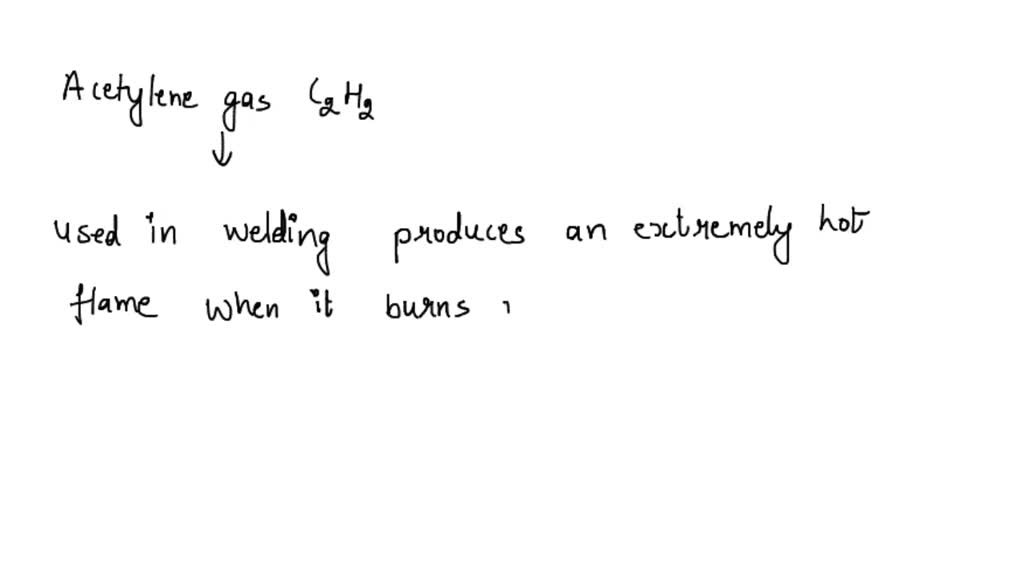 Acetylene gas C₂H₂
↓
used in welding produces an extremely hot
flame when it burns